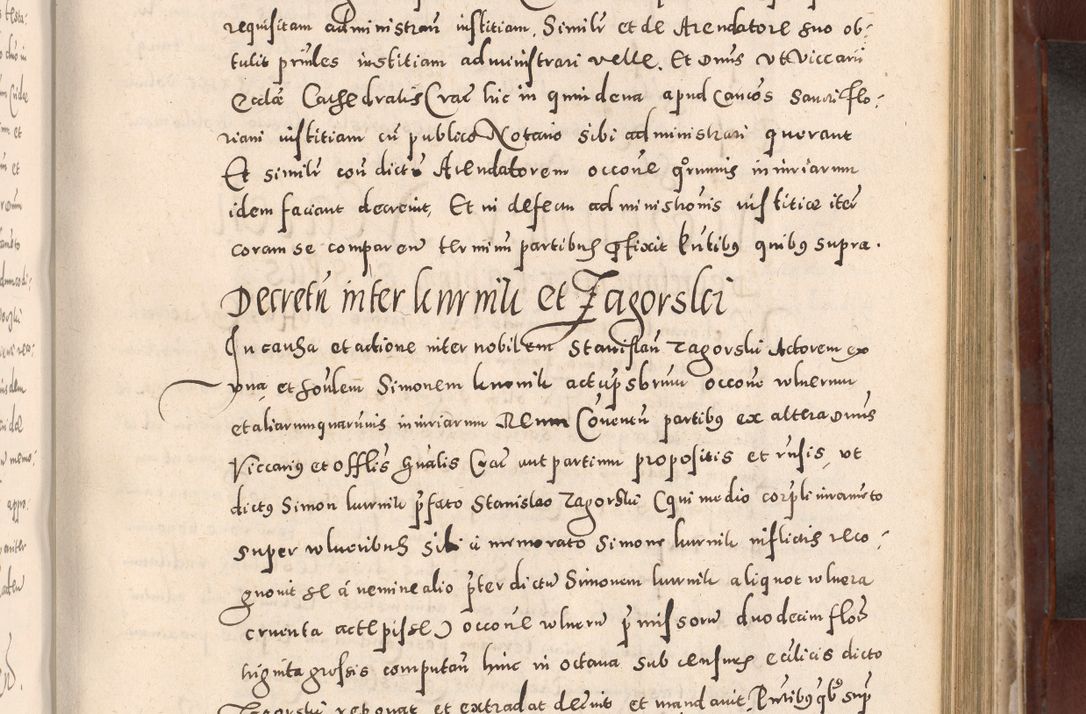 requisitam administrari iustitiam. Similr et de Arendatore suo ob:
tulit pntes iustitiam administrari velle. Et Dnus vt Viccari
Ecclae Cathedralis Crac hic in quindena apud Canos Sancti flo:
riani iustitiam cu publico Notario sibi administrari querant
Et similr con dictu Arendatorem occone qrumuis iniuriarum
idem faciant decreuit, Et in defectu administronis iustitiae iter
coram se comparere terminu partibus pfixit Pntibus quibus supra.
Decretu inter kurnik et Zagorski
In causa et actione inter nobilem Stanislau Zagorski Actorem ex
vna et Simonem kurnik occone vulnerum
et aliarum quarumuis iniuriarum Reum Couentu partibus ex altera Dnus
Viccarius et Offlis Gnalis Crac aut partium propositis et visis, vt
dictus Simon kurnik pfato Stanislao Zagorski (qui medio corpli iuramento
super vulneribus sibi a memorato Simone kurnik inflictis reco:
gnouit se a nemine alio pter dictu Simonem kurnik aliquot vulnera
cruenta accepisse) occone vulneru pmissoru duodecim flor
triginta grossis computan hinc in octaua sub censuris ecclicis dicto
Zagorski reponat et extradat decreuit et mandauit. Pntibus qbus sup